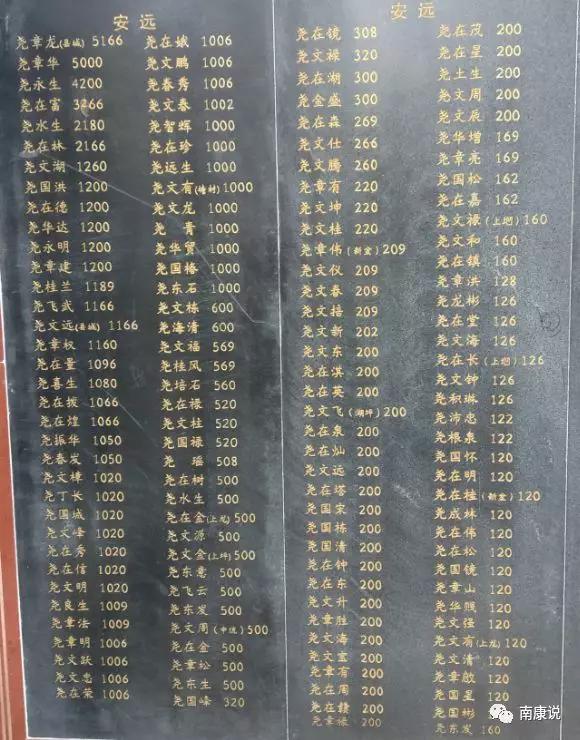 安远
尧章龙(县城) 5166
尧章华 5000
尧永生 4200
尧在富 3266
尧水生 2180
尧在林 2166
尧文湖 1260
尧国洪 1200
尧在德 1200
尧华达 1200
尧永明 1200
尧章建 1200
尧桂兰 1189
尧飞武 1166
尧文远(县城) 1166
尧章权 1160
尧在量 1096
尧喜生 1080
尧在拔 1066
尧在煌 1066
尧振华 1050
尧春发 1050
尧文樟 1020
尧丁长 1020
尧国城 1020
尧文峰 1020
尧在秀 1020
尧在信 1020
尧文明 1020
尧良生 1009
尧章法 1009
尧章明 1006
尧文跃 1006
尧文忠 1006
尧在荣 1006
尧在娥 1006
尧文鹏 1006
尧春秀 1006
尧文春 1002
尧智辉 1000
尧在珍 1000
尧远生 1000
尧文有 1000
尧文龙 1000
尧青 1000
尧华贸 1000
尧国椿 1000
尧东石 1000
尧文栋 600
尧海清 600
尧文福 569
尧桂风 569
尧培石 560
尧在禄 520
尧文桂 520
尧国禄 520
尧瑶 508
尧在树 500
尧水生 500
尧在金(上龙) 500
尧文源 500
尧文金(上坪) 500
尧东意 500
尧飞云 500
尧东发 500
尧文周 500
尧在金 500
尧章松 500
尧东生 500
尧国峰 320
安远
尧在镜 308
尧文禄 320
尧在湖 300
尧金盛 300
尧在森 269
尧文仕 266
尧文腾 260
尧章有 220
尧文坤 220
尧文桂 220
尧章伟 209
尧文仪 209
尧文春 209
尧文培 209
尧文新 202
尧文东 200
尧在淇 200
尧在英 200
尧文飞 200
尧在泉 200
尧在灿 200
尧文远 200
尧在塔 200
尧国家 200
尧国栋 200
尧国清 200
尧在钟 200
尧在东 200
尧文升 200
尧章胜 200
尧文海 200
尧文宝 200
尧章有 200
尧在周 200
尧在赣 200
尧章禄 200
尧在茂 200
尧在星 200
尧土生 200
尧文周 200
尧文辰 200
尧华增 169
尧章亮 169
尧国松 162
尧在嘉 162
尧文禄 160
尧文和 160
尧在镇 160
尧章洪 128
尧龙彬 126
尧在堂 126
尧文海 126
尧在长 126
尧文钟 126
尧积琳 126
尧沛忠 122
尧根泉 122
尧国怀 120
尧在明 120
尧在桂 120
尧成林 120
尧在伟 120
尧在松 120
尧国镜 120
尧章山 120
尧华赐 120
尧文强 120
尧文有(上龙) 120
尧文清 120
尧章啟 120
尧国星 120
尧国彬
尧东发 160
南康说